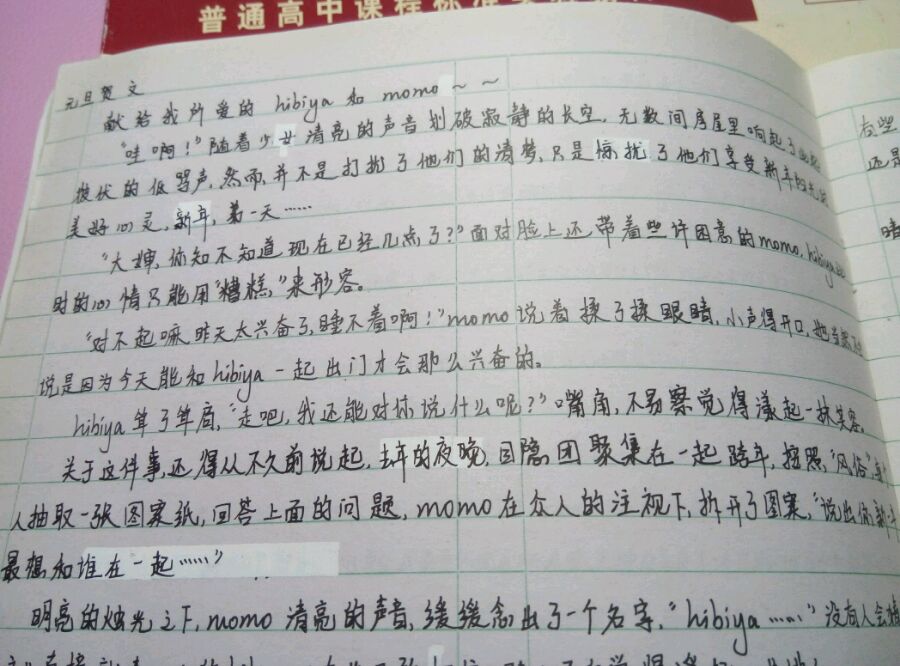 普通高中课程标准实验
元旦贺文
献给我所爱的 hibiya 和 momo~~
"哇啊!"随着少女清亮的声音划破寂静的长空,无数间房屋里响起了
被伏的低骂声,然而,并不是打扰了他们的清梦,只是惊扰了他们享受新年的
美好心灵,新年,第一天……
"大婶,你知不知道,现在已经几点了?"面对脸上还带着些许困意的momo,hibiya
时的心情只能用"糟糕"来形容。
"对不起嘛,昨天太兴奋了,睡不着啊!"momo说着揉了揉眼睛,小声得开口,她当然
说是因为今天能和hibiya一起出门才会那么兴奋的。
hibiya耸了耸肩,"走吧,我还能对你说什么呢?"嘴角,不易察觉得漾起一抹笑容。
关于这件事,还得从不久前说起,去年的夜晚,目隐团聚集在一起跨年,按照"风俗",
人抽取一张图案纸,回答上面的问题,momo在众人的注视下,拆开了图案,"说出你新年
最想和谁在一起……"
明亮的烛光之下,momo清亮的声音,缓缓念出了一个名字,"hibiya……"没有人会
有些
还是